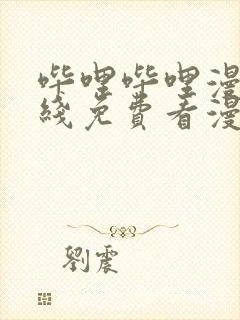 哔哩哔哩漫
线免费看漫
劉震